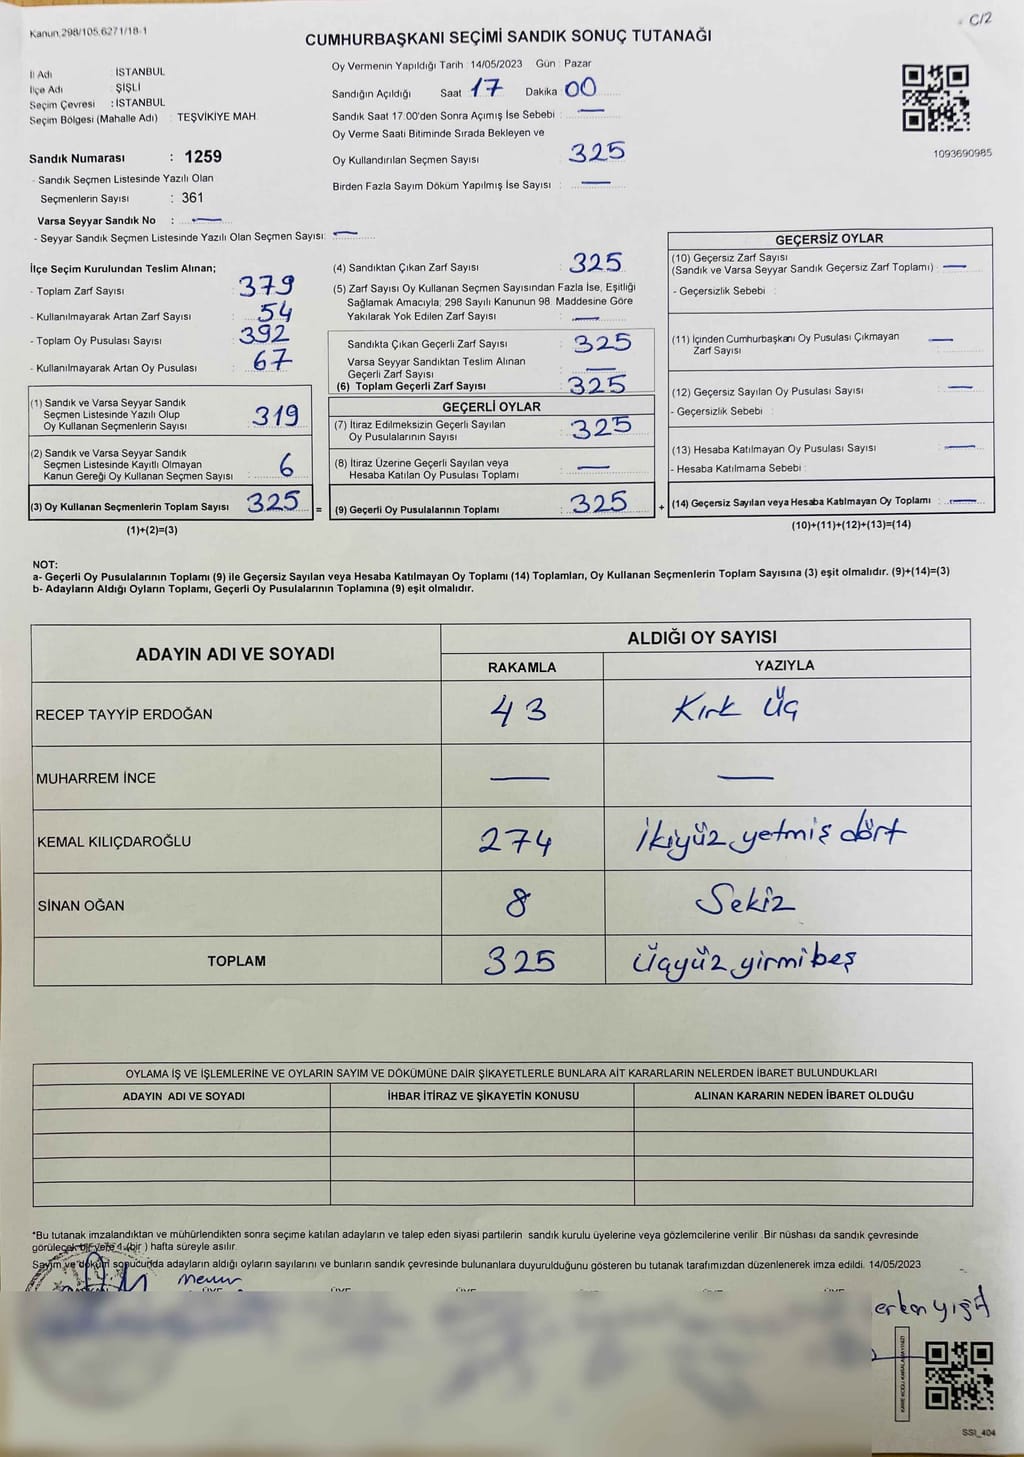 Kanun 298/105,6271/18-1
C/2
CUMHURBAŞKANI SEÇİMİ SANDIK SONUÇ TUTANAĞI
İl Adı : İSTANBUL
İlçe Adı : ŞİŞLİ
Seçim Çevresi : İSTANBUL
Seçim Bölgesi (Mahalle Adı) : TEŞVİKİYE MAH.
Sandık Numarası : 1259
- Sandık Seçmen Listesinde Yazılı Olan
Seçmenlerin Sayısı : 361
Varsa Seyyar Sandık No : —
- Seyyar Sandık Seçmen Listesinde Yazılı Olan Seçmen Sayısı: —
Oy Vermenin Yapıldığı Tarih : 14/05/2023 Gün : Pazar
Sandığın Açıldığı Saat 17 Dakika 00
Sandık Saat 17:00'den Sonra Açımış İse Sebebi : —
Oy Verme Saati Bitiminde Sırada Bekleyen ve
Oy Kullandırılan Seçmen Sayısı 325
Birden Fazla Sayım Döküm Yapılmış İse Sayısı : —
1093690985
İlçe Seçim Kurulundan Teslim Alınan;
- Toplam Zarf Sayısı : 379
- Kullanılmayarak Artan Zarf Sayısı : 54
- Toplam Oy Pusulası Sayısı : 392
- Kullanılmayarak Artan Oy Pusulası : 67
(1) Sandık ve Varsa Seyyar Sandık
Seçmen Listesinde Yazılı Olup
Oy Kullanan Seçmenlerin Sayısı : 319
(2) Sandık ve Varsa Seyyar Sandık
Seçmen Listesinde Kayıtlı Olmayan
Kanun Gereği Oy Kullanan Seçmen Sayısı : 6
(3) Oy Kullanan Seçmenlerin Toplam Sayısı : 325
(1)+(2)=(3)
=
(4) Sandıktan Çıkan Zarf Sayısı : 325
(5) Zarf Sayısı Oy Kullanan Seçmen Sayısından Fazla İse, Eşitliği
Sağlamak Amacıyla; 298 Sayılı Kanunun 98. Maddesine Göre
Yakılarak Yok Edilen Zarf Sayısı : —
Sandıkta Çıkan Geçerli Zarf Sayısı : 325
Varsa Seyyar Sandıktan Teslim Alınan
Geçerli Zarf Sayısı : —
(6) Toplam Geçerli Zarf Sayısı : 325
GEÇERLİ OYLAR
(7) İtiraz Edilmeksizin Geçerli Sayılan
Oy Pusulalarının Sayısı : 325
(8) İtiraz Üzerine Geçerli Sayılan veya
Hesaba Katılan Oy Pusulası Toplamı : —
(9) Geçerli Oy Pusulalarının Toplamı : 325
+
GEÇERSİZ OYLAR
(10) Geçersiz Zarf Sayısı
(Sandık ve Varsa Seyyar Sandık Geçersiz Zarf Toplamı) : —
- Geçersizlik Sebebi :
(11) İçinden Cumhurbaşkanı Oy Pusulası Çıkmayan
Zarf Sayısı : —
(12) Geçersiz Sayılan Oy Pusulası Sayısı : —
- Geçersizlik Sebebi :
(13) Hesaba Katılmayan Oy Pusulası Sayısı : —
- Hesaba Katılmama Sebebi :
(14) Geçersiz Sayılan veya Hesaba Katılmayan Oy Toplamı : —
(10)+(11)+(12)+(13)=(14)
NOT:
a- Geçerli Oy Pusulalarının Toplamı (9) ile Geçersiz Sayılan veya Hesaba Katılmayan Oy Toplamı (14) Toplamları, Oy Kullanan Seçmenlerin Toplam Sayısına (3) eşit olmalıdır. (9)+(14)=(3)
b- Adayların Aldığı Oyların Toplamı, Geçerli Oy Pusulalarının Toplamına (9) eşit olmalıdır.
ADAYIN ADI VE SOYADI
ALDIĞI OY SAYISI
RAKAMLA YAZIYLA
RECEP TAYYİP ERDOĞAN 43 Kırk Üç
MUHARREM İNCE — —
KEMAL KILIÇDAROĞLU 274 İkiyüz yetmiş dört
SİNAN OĞAN 8 Sekiz
TOPLAM 325 Üçyüz yirmi beş
OYLAMA İŞ VE İŞLEMLERİNE VE OYLARIN SAYIM VE DÖKÜMÜNE DAİR ŞİKAYETLERLE BUNLARA AİT KARARLARIN NELERDEN İBARET BULUNDUKLARI
ADAYIN ADI VE SOYADI İHBAR İTİRAZ VE ŞİKAYETİN KONUSU ALINAN KARARIN NEDEN İBARET OLDUĞU
*Bu tutanak imzalandıktan ve mühürlendikten sonra seçime katılan adayların ve talep eden siyasi partilerin sandık kurulu üyelerine veya gözlemcilerine verilir. Bir nüshası da sandık çevresinde
görülecek bir yere 1 (bir ) hafta süreyle asılır.
Sayım ve döküm sonucunda adayların aldığı oyların sayılarını ve bunların sandık çevresinde bulunanlara duyurulduğunu gösteren bu tutanak tarafımızdan düzenlenerek imza edildi. 14/05/2023
Memur
erkan yiğit
SSI_404